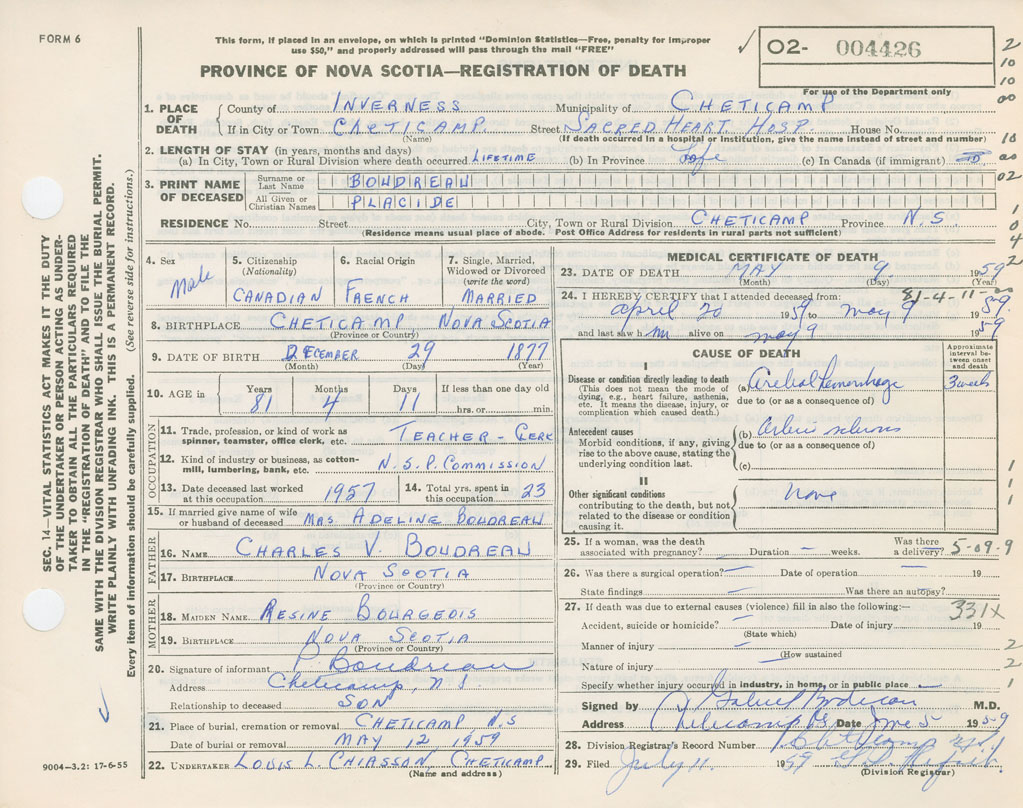 FORM 6
This form, if placed in an envelope, on which is printed "Dominion Statistics—Free, penalty for improper
use $50," and properly addressed will pass through the mail "FREE"
✓ 02- 004426
For use of the Department only
PROVINCE OF NOVA SCOTIA—REGISTRATION OF DEATH
1. PLACE OF DEATH { County of INVERNESS Municipality of CHETICAMP
If in City or Town CHETICAMP. Street SACRED HEART. HOSP. House No.
(Name) (If death occurred in a hospital or institution, give the name instead of street and number)
2. LENGTH OF STAY (in years, months and days)
(a) In City, Town or Rural Division where death occurred LIFETIME (b) In Province Life (c) In Canada (if immigrant)
3. PRINT NAME OF DECEASED
Surname or Last Name BOUDREAU
All Given or Christian Names PLACIDE
RESIDENCE No. Street City, Town or Rural Division CHETICAMP Province N.S.
(Residence means usual place of abode. Post Office Address for residents in rural parts not sufficient)
4. Sex Male
5. Citizenship (Nationality) CANADIAN
6. Racial Origin FRENCH
7. Single, Married, Widowed or Divorced (write the word) MARRIED
8. BIRTHPLACE CHETICAMP NOVA SCOTIA
(Province or Country)
9. DATE OF BIRTH DECEMBER 29 1877
(Month) (Day) (Year)
10. AGE in Years 81 Months 4 Days 11 If less than one day old hrs. or min.
OCCUPATION
11. Trade, profession, or kind of work as spinner, teamster, office clerk, etc. TEACHER - CLERK
12. Kind of industry or business, as cotton-mill, lumbering, bank, etc. N.S.P. COMMISSION
13. Date deceased last worked at this occupation 1957
14. Total yrs. spent in this occupation 23
15. If married give name of wife or husband of deceased MRS ADELINE BOUDREAU
FATHER
16. NAME CHARLES V. BOUDREAU
17. BIRTHPLACE NOVA SCOTIA
(Province or Country)
MOTHER
18. MAIDEN NAME RESINE BOURGEOIS
19. BIRTHPLACE NOVA SCOTIA
(Province or Country)
20. Signature of informant P. Boudreau
Address Cheticamp, N.S.
Relationship to deceased SON
21. Place of burial, cremation or removal CHETICAMP N.S
Date of burial or removal MAY 12 1959
22. UNDERTAKER LOUIS L. CHIASSON CHETICAMP
(Name and address)
MEDICAL CERTIFICATE OF DEATH
23. DATE OF DEATH MAY 9 1959
(Month) (Day) (Year)
81-4-11
24. I HEREBY CERTIFY that I attended deceased from:
April 20 1959 to May 9 1959
and last saw him alive on May 9 1959
CAUSE OF DEATH
Approximate interval between onset and death
I
Disease or condition directly leading to death
(This does not mean the mode of dying, e.g., heart failure, asthenia, etc. It means the disease, injury, or complication which caused death.)
(a) 3 weeks
due to (or as a consequence of)
Antecedent causes
Morbid conditions, if any, giving rise to the above cause, stating the underlying condition last.
(b)
due to (or as a consequence of)
(c)
II
Other significant conditions
contributing to the death, but not related to the disease or condition causing it.
None
25. If a woman, was the death associated with pregnancy? — Duration — weeks. Was there a delivery? —
5-09-9
26. Was there a surgical operation? — Date of operation — 19
State findings Was there an autopsy? —
27. If death was due to external causes (violence) fill in also the following:—
331X
Accident, suicide or homicide? — Date of injury 19
(State which)
Manner of injury —
(How sustained
Nature of injury —
Specify whether injury occurred in industry, in home, or in public place —
Signed by M.D.
Address Cheticamp NS Date June 5 1959
28. Division Registrar's Record Number
29. Filed July 11 1959
(Division Registrar)
SEC. 14—VITAL STATISTICS ACT MAKES IT THE DUTY
OF THE UNDERTAKER OR PERSON ACTING AS UNDER-
TAKER TO OBTAIN ALL THE PARTICULARS REQUIRED
IN THE "REGISTRATION OF DEATH" AND TO FILE THE
SAME WITH THE DIVISION REGISTRAR WHO SHALL ISSUE THE BURIAL PERMIT.
WRITE PLAINLY WITH UNFADING INK. THIS IS A PERMANENT RECORD.
Every item of information should be carefully supplied. (See reverse side for instructions.)
9004-3.2: 17-6-55